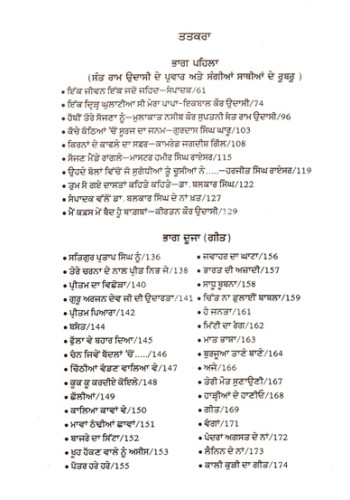 ਤਤਕਰਾ
ਭਾਗ ਪਹਿਲਾ
(ਸੰਤ ਰਾਮ ਉਦਾਸੀ ਦੇ ਪ੍ਰਵਾਰ ਅਤੇ ਸੰਗੀਆਂ ਸਾਥੀਆਂ ਦੇ ਰੂਬਰੂ)
• ਇੱਕ ਜੀਵਨ ਇੱਕ ਜਦੋ ਜਹਿਦ–ਸੰਪਾਦਕ/61
• ਇੱਕ ਦ੍ਰਿੜ੍ਹ ਘੁਲਾਟੀਆ ਸੀ ਮੇਰਾ ਪਾਪਾ–ਇਕਬਾਲ ਕੌਰ ਉਦਾਸੀ/74
• ਹੱਥੀਂ ਤੋਰੇ ਸੱਜਣਾ ਨੂੰ–ਮੁਲਾਕਾਤ ਨਸੀਬ ਕੌਰ ਸੁਪਤਨੀ ਸੰਤ ਰਾਮ ਉਦਾਸੀ/96
• ਕੱਚੇ ਕੋਠਿਆਂ 'ਚੋਂ ਸੂਰਜ ਦਾ ਜਨਮ–ਗੁਰਦਾਸ ਸਿੰਘ ਘਾਰੂ/103
• ਕਿਰਨਾਂ ਦੇ ਕਾਫਲੇ ਦਾ ਸਫਰ–ਕਾਮਰੇਡ ਜਗਦੀਸ਼ ਗਿੱਲ/108
• ਸੱਜਣ ਮੈਂਡੇ ਰਾਂਗਲੇ–ਮਾਸਟਰ ਹਮੀਰ ਸਿੰਘ ਰਾਏਸਰ/115
• ਉਹਦੇ ਬੋਲਾਂ ਵਿੱਚੋਂ ਜੋ ਸੁਗੰਧੀਆਂ ਤੂੰ ਚੁਸੀਆਂ ਨੇ.....–ਹਰਜੀਤ ਸਿੰਘ ਰਾਏਸਰ/119
• ਤੁਮ ਸੋ ਗਏ ਦਾਸਤਾਂ ਕਹਿਤੇ ਕਹਿਤੇ–ਡਾ. ਬਲਕਾਰ ਸਿੰਘ/122
• ਸੰਪਾਦਕ ਵੱਲੋਂ ਡਾ. ਬਲਕਾਰ ਸਿੰਘ ਦੇ ਨਾਂ ਖਤ/127
• ਮੈਂ ਕਫ਼ਸ ਮੇਂ ਬੰਦ ਹੂੰ ਬਾਗਬਾਂ–ਕੀਰਤਨ ਕੌਰ ਉਦਾਸੀ/129
ਭਾਗ ਦੂਜਾ (ਗੀਤ)
• ਸਤਿਗੁਰ ਪ੍ਰਤਾਪ ਸਿੰਘ ਨੂੰ/136
• ਤੇਰੇ ਚਰਨਾ ਦੇ ਨਾਲ ਪ੍ਰੀਤ ਨਿਭ ਜੇ/138
• ਪ੍ਰੀਤਮ ਦਾ ਵਿਛੋੜਾ/140
• ਗੁਰੂ ਅਰਜਨ ਦੇਵ ਜੀ ਦੀ ਉਦਾਰਤਾ/141
• ਪ੍ਰੀਤਮ ਪਿਆਰਾ/142
• ਬਸੰਤ/144
• ਫੁੱਲਾ ਵੇ ਬਹਾਰ ਦਿਆ/145
• ਚੰਨ ਜਿਵੇਂ ਬੱਦਲਾਂ 'ਚ...../146
• ਚਿੱਠੀਆਂ ਵੰਡਣ ਵਾਲਿਆ ਵੇ/147
• ਕੂਕ ਕੂ ਕਰਦੀਏ ਕੋਇਲੇ/148
• ਛੱਲੀਆਂ/149
• ਕਾਲਿਆ ਕਾਵਾਂ ਵੇ/150
• ਮਾਵਾਂ ਠੰਢੀਆਂ ਛਾਵਾਂ/151
• ਬਾਜਰੇ ਦਾ ਸਿੱਟਾ/152
• ਖੂਹ ਹੱਕਣ ਵਾਲੇ ਨੂੰ ਅਸੀਸ/153
• ਪੱਤਰ ਹਰੇ ਹਰੇ/155
• ਜਵਾਹਰ ਦਾ ਘਾਟਾ/156
• ਭਾਰਤ ਦੀ ਅਜ਼ਾਦੀ/157
• ਸਾਧੂ ਬੂਬਨਾ/158
• ਚਿੱਤ ਨਾ ਡੁਲਾਈਂ ਬਾਬਲਾ/159
• ਹੇ ਜਨਤਾ/161
• ਮਿੱਟੀ ਦਾ ਰੰਗ/162
• ਮਾਤ ਭਾਸ਼ਾ/163
• ਬੁਰਜੂਆ ਤਾਣੇ ਬਾਣੇ/164
• ਅਜੰ/166
• ਤੇਰੀ ਮੌਤ ਸੁਣਾਉਣੀ/167
• ਹਾੜ੍ਹੀਆਂ ਦੇ ਹਾਣੀਓ/168
• ਗੀਤ/169
• ਵੰਗਾਂ/171
• ਪੰਦਰਾਂ ਅਗਸਤ ਦੇ ਨਾਂ/172
• ਲੈਨਿਨ ਦੇ ਨਾਂ/173
• ਕਾਲੀ ਕੁੜੀ ਦਾ ਗੀਤ/174